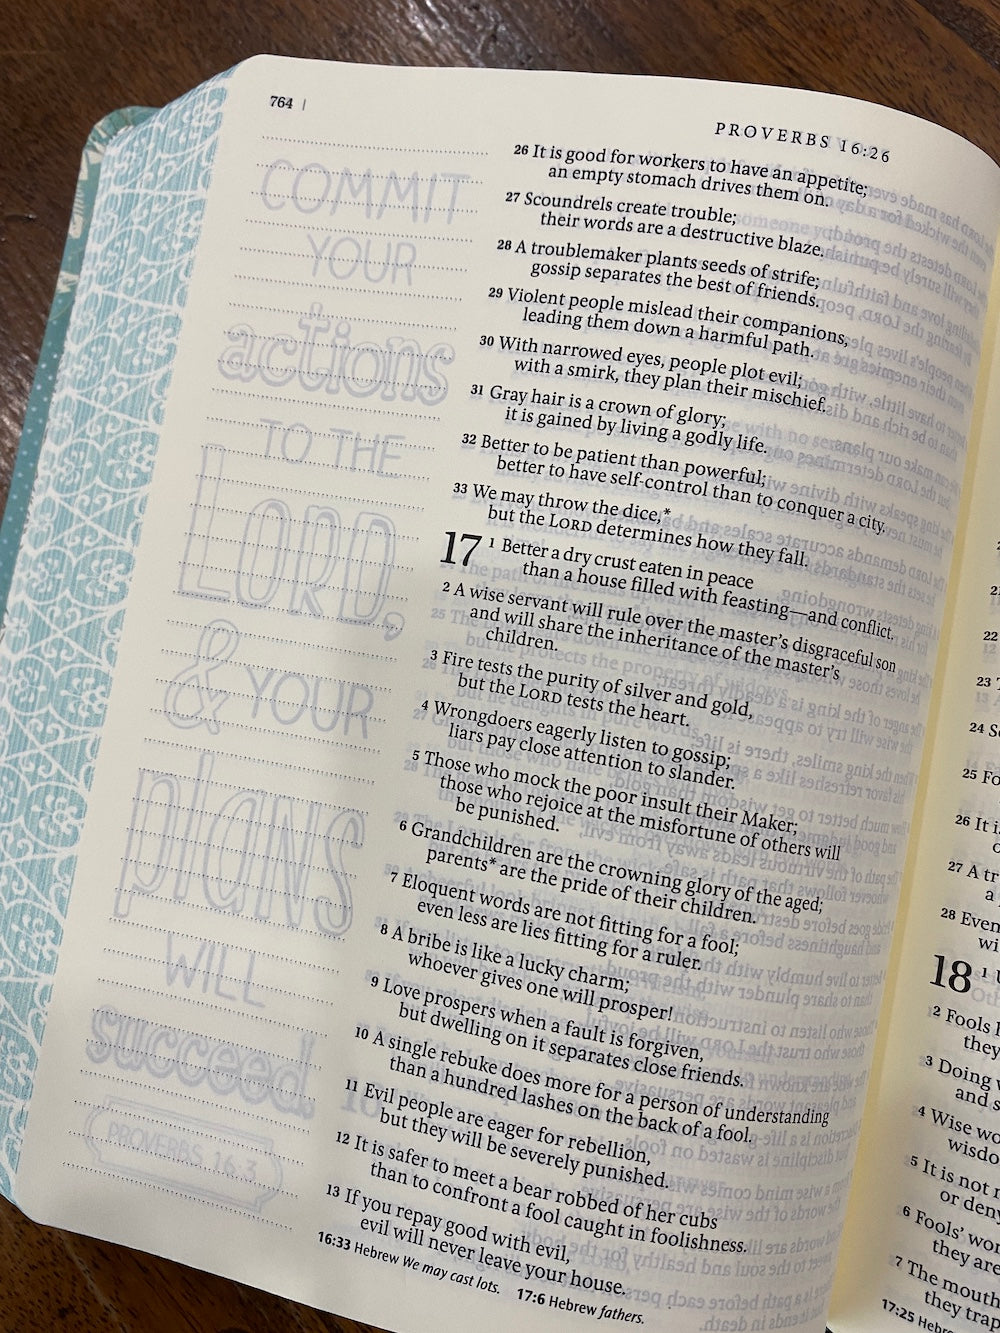 764 |
PROVERBS 16:26
COMMIT
YOUR
actions
TO THE
LORD,
& YOUR
plans
WILL
succeed.
PROVERBS 16:3
26 It is good for workers to have an appetite;
an empty stomach drives them on.
27 Scoundrels create trouble;
their words are a destructive blaze.
28 A troublemaker plants seeds of strife;
gossip separates the best of friends.
29 Violent people mislead their companions,
leading them down a harmful path.
30 With narrowed eyes, people plot evil;
with a smirk, they plan their mischief.
31 Gray hair is a crown of glory;
it is gained by living a godly life.
32 Better to be patient than powerful;
better to have self-control than to conquer a city.
33 We may throw the dice,*
but the LORD determines how they fall.
17 1 Better a dry crust eaten in peace
than a house filled with feasting—and conflict.
2 A wise servant will rule over the master's disgraceful son
and will share the inheritance of the master's
children.
3 Fire tests the purity of silver and gold,
but the LORD tests the heart.
4 Wrongdoers eagerly listen to gossip;
liars pay close attention to slander.
5 Those who mock the poor insult their Maker;
those who rejoice at the misfortune of others will
be punished.
6 Grandchildren are the crowning glory of the aged;
parents* are the pride of their children.
7 Eloquent words are not fitting for a fool;
even less are lies fitting for a ruler.
8 A bribe is like a lucky charm;
whoever gives one will prosper!
9 Love prospers when a fault is forgiven,
but dwelling on it separates close friends.
10 A single rebuke does more for a person of understanding
than a hundred lashes on the back of a fool.
11 Evil people are eager for rebellion,
but they will be severely punished.
12 It is safer to meet a bear robbed of her cubs
than to confront a fool caught in foolishness.
13 If you repay good with evil,
evil will never leave your house.
16:33 Hebrew We may cast lots. 17:6 Hebrew fathers.
22
23
24
25 Fo
26 It i
27 A tr
a
28 Even
wi
18 1
2 Fools
they
3 Doing
and s
4 Wise wo
wisdo
5 It is not
or deny
6 Fools' wor
they are
7 The mouth
they trap
17:25 Hebr